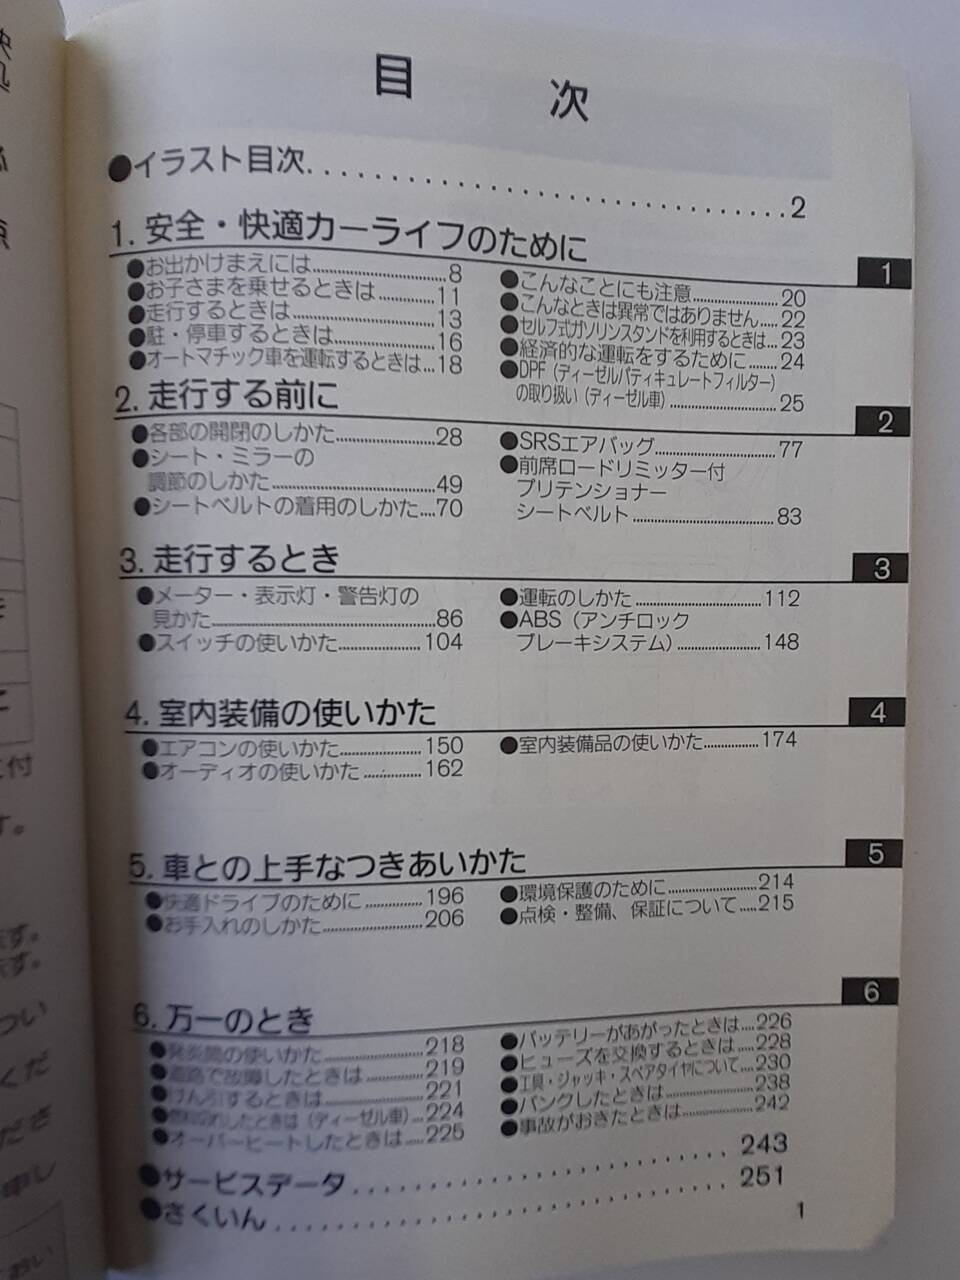 目 次
●イラスト目次..........2
1. 安全・快適カーライフのために
1
●お出かけまえには..........8
●お子さまを乗せるときは..........11
●走行するときは..........13
●駐・停車するときは..........16
●オートマチック車を運転するときは...18
●こんなことにも注意..........20
●こんなときは異常ではありません.....22
●セルフ式ガソリンスタンドを利用するときは...23
●経済的な運転をするために........24
●DPF（ディーゼルパティキュレートフィルター）
の取り扱い（ディーゼル車）..........25
2. 走行する前に
2
●各部の開閉のしかた..........28
●シート・ミラーの
調節のしかた..........49
●シートベルトの着用のしかた....70
●SRSエアバッグ..........77
●前席ロードリミッター付
プリテンショナー
シートベルト..........83
3. 走行するとき
3
●メーター・表示灯・警告灯の
見かた..........86
●スイッチの使いかた..........104
●運転のしかた..........112
●ABS（アンチロック
ブレーキシステム）..........148
4. 室内装備の使いかた
4
●エアコンの使いかた..........150
●オーディオの使いかた..........162
●室内装備品の使いかた..........174
5. 車との上手なつきあいかた
5
●快適ドライブのために..........196
●お手入れのしかた..........206
●環境保護のために..........214
●点検・整備、保証について.....215
6. 万一のとき
6
●発炎筒の使いかた..........218
●道路で故障したときは..........219
●けん引するときは..........221
●燃料切れしたときは（ディーゼル車）....224
●オーバーヒートしたときは.....225
●バッテリーがあがったときは....226
●ヒューズを交換するときは.....228
●工具・ジャッキ・スペアタイヤについて....230
●パンクしたときは..........238
●事故がおきたときは..........242
●サービスデータ..........243
●さくいん..........251
1